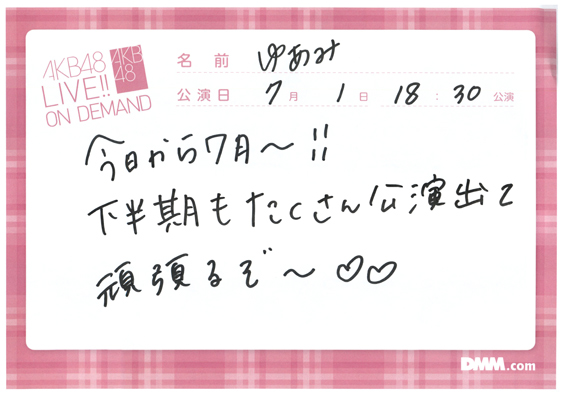 AKB48
LIVE!!
ON DEMAND
AKB
48
名前 ゆあみ
公演日 7月 1日 18:30 公演
今日から7月〜!!
下半期もたくさん公演出て
頑張るぞ〜♡♡
DMM.com